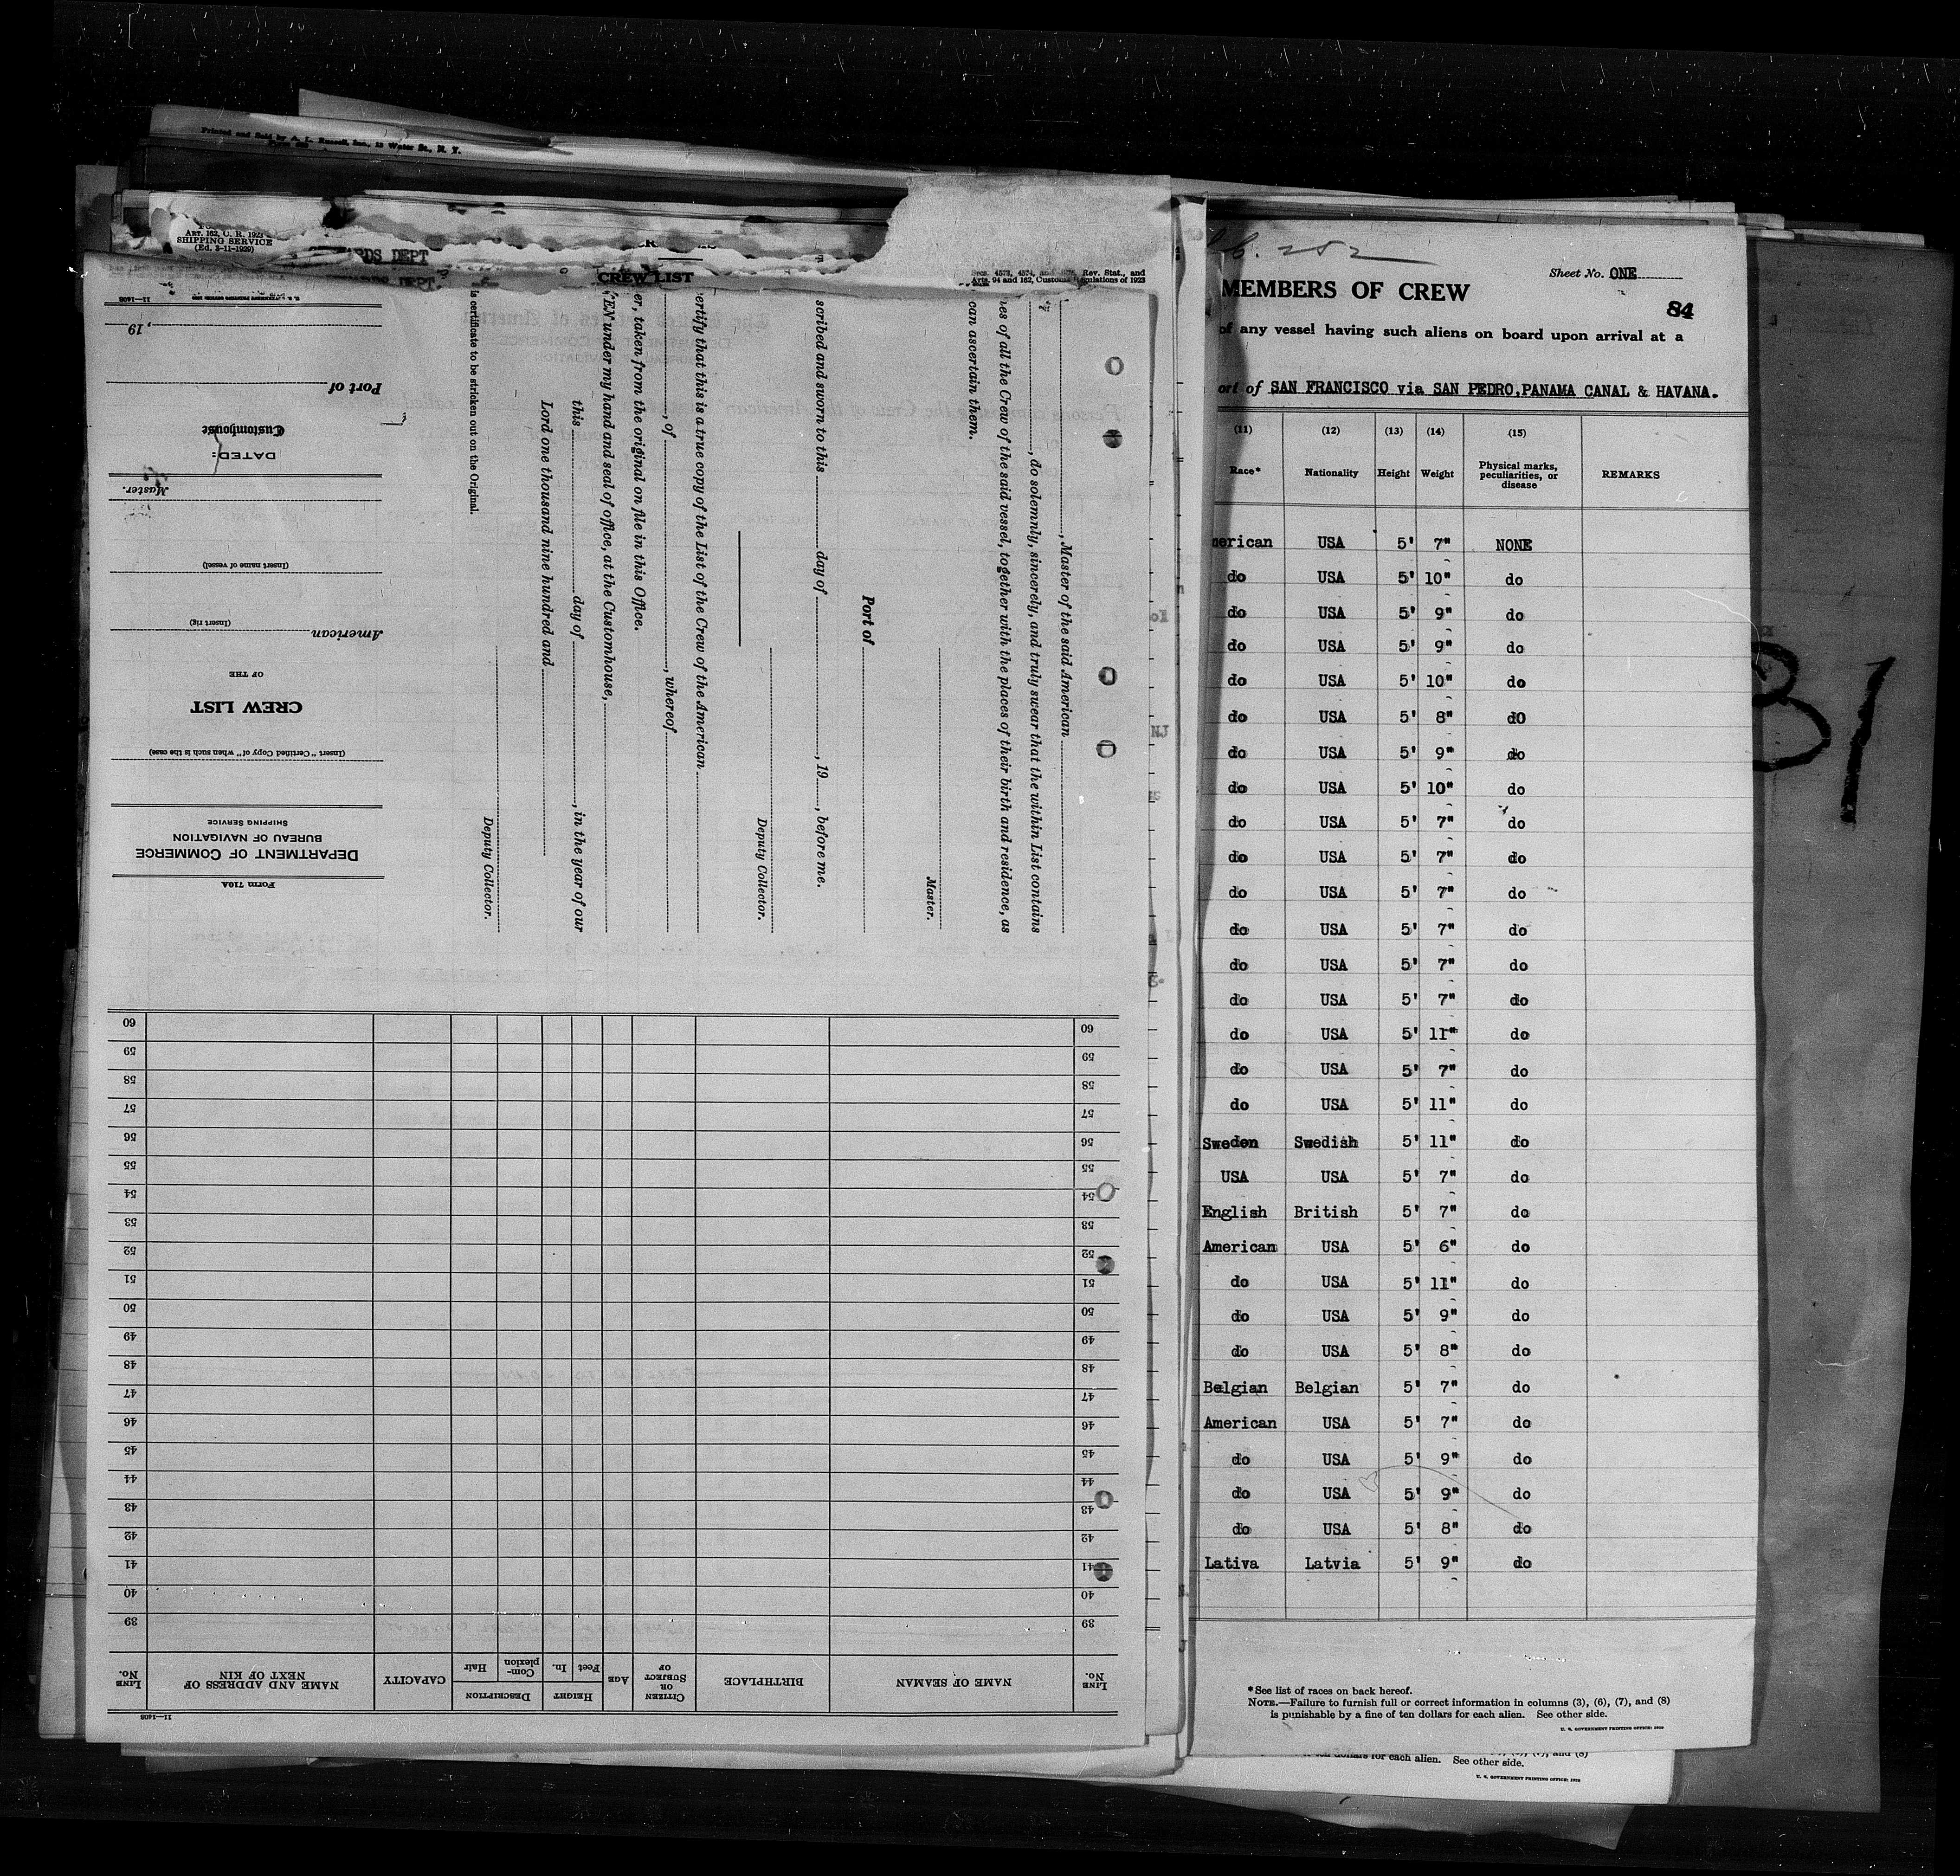 Printed and Sold by A. L. Russell, Inc., 12 Water St., N. Y.
ART. 162, C. R. 1923
SHIPPING SERVICE
(Ed. 3-11-1929)
RDS DEPT
CREW LIST
Secs. 4573, 4574, and 4575, Rev. Stat., and
Arts. 94 and 162, Customs Regulations of 1923
, Master of the said American
, do solemnly, sincerely, and truly swear that the within List contains
es of all the Crew of the said vessel, together with the places of their birth and residence, as
can ascertain them.
Master.
Port of
scribed and sworn to this day of , 19 , before me.
Deputy Collector.
ertify that this is a true copy of the List of the Crew of the American
, of , whereof
er, taken from the original on file in this Office.
EN under my hand and seal of office, at the Customhouse,
this day of , in the year of our
Lord one thousand nine hundred and
Deputy Collector.
is certificate to be stricken out on the Original.
Form 710A
DEPARTMENT OF COMMERCE
BUREAU OF NAVIGATION
SHIPPING SERVICE
(Insert "Certified Copy of" when such is the case)
CREW LIST
OF THE
American
(Insert rig)
(Insert name of vessel)
Master.
DATED:
Customhouse
Port of
, 19
11—1408
LINE No. NAME OF SEAMAN BIRTHPLACE CITIZEN OR SUBJECT OF AGE HEIGHT Feet In. DESCRIPTION Complexion Hair CAPACITY NAME AND ADDRESS OF NEXT OF KIN LINE No.
39 39
40 40
41 41
42 42
43 43
44 44
45 45
46 46
47 47
48 48
49 49
50 50
51 51
52 52
53 53
54 54
55 55
56 56
57 57
58 58
59 59
60 60
11—1408
252
Sheet No. ONE
MEMBERS OF CREW
84
of any vessel having such aliens on board upon arrival at a
ort of SAN FRANCISCO via SAN PEDRO,PANAMA CANAL & HAVANA.
(11) (12) (13) (14) (15)
Race* Nationality Height Weight Physical marks, peculiarities, or disease REMARKS
merican USA 5' 7" NONE
do USA 5' 10" do
do USA 5' 9" do
do USA 5' 9" do
do USA 5' 10" do
do USA 5' 8" dO
do USA 5' 9" do
do USA 5' 10" do
do USA 5' 7" do
do USA 5' 7" do
do USA 5' 7" do
do USA 5' 7" do
do USA 5' 7" do
do USA 5' 7" do
do USA 5' 11" do
do USA 5' 7" do
do USA 5' 11" do
Sweden Swedish 5' 11" do
USA USA 5' 7" do
English British 5' 7" do
American USA 5' 6" do
do USA 5' 11" do
do USA 5' 9" do
do USA 5' 8" do
Belgian Belgian 5' 7" do
American USA 5' 7" do
do USA 5' 9" do
do USA 5' 9" do
do USA 5' 8" do
Lativa Latvia 5' 9" do
*See list of races on back hereof.
NOTE.—Failure to furnish full or correct information in columns (3), (6), (7), and (8)
is punishable by a fine of ten dollars for each alien. See other side.
U. S. GOVERNMENT PRINTING OFFICE: 1929
ten dollars for each alien. See other side.
U. S. GOVERNMENT PRINTING OFFICE: 1929